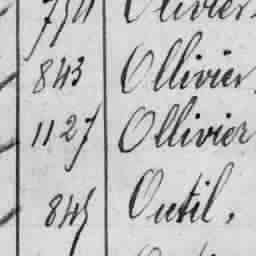 Olivier
843 Ollivier
1127 Ollivier
845 Outil.